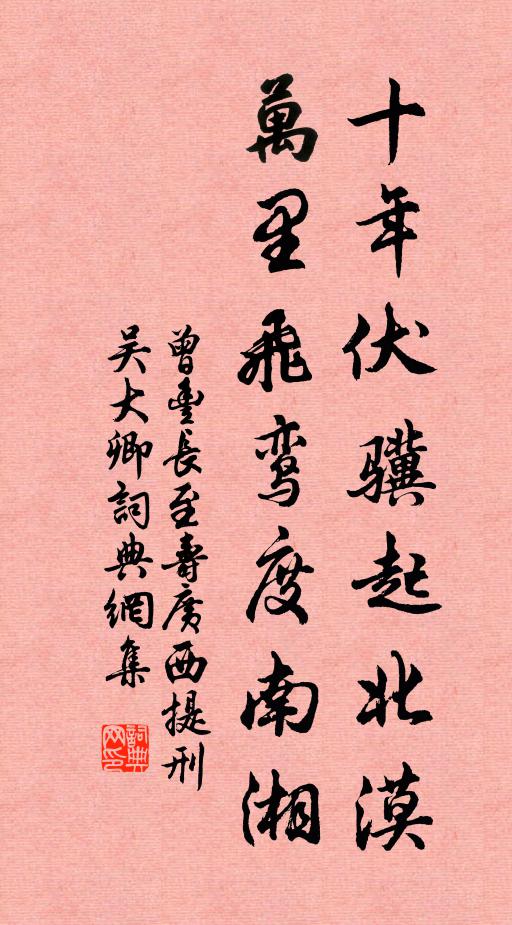 十年伏骥起北漠
萬里飛鸾度南湘
曾豐長至壽廣西提刑
吴大卿詞典網集
詞典网印